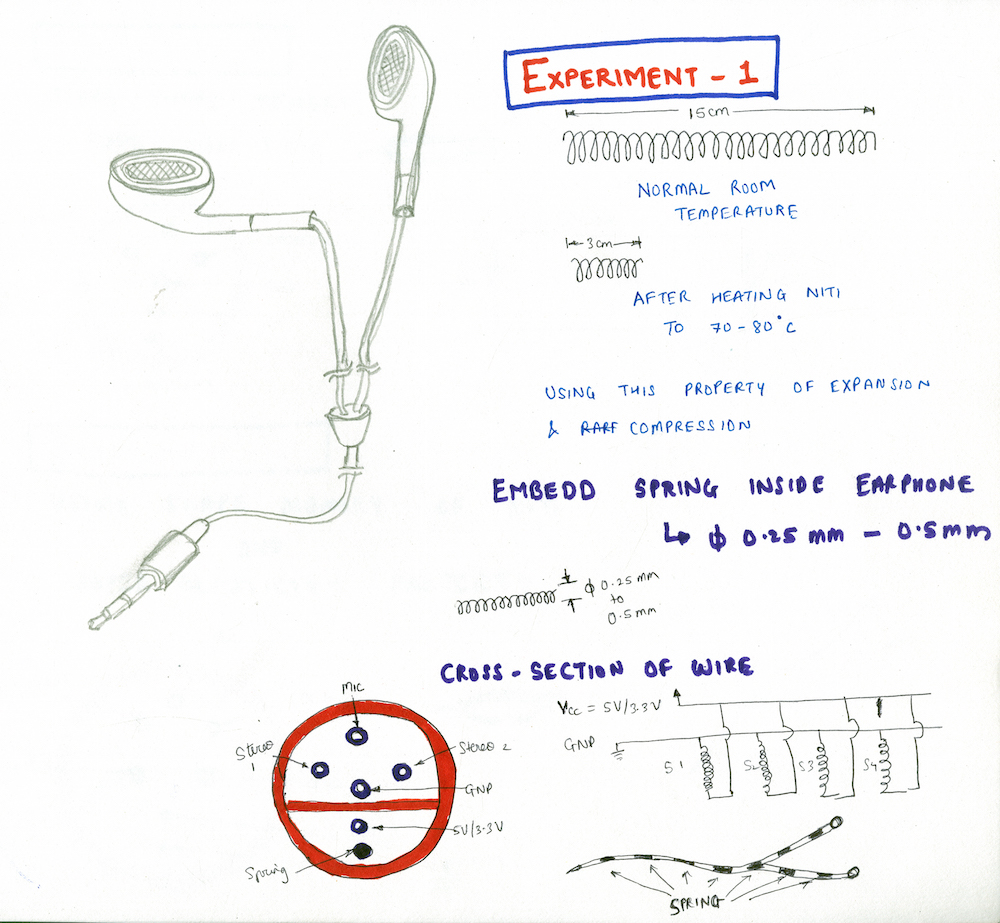 EXPERIMENT - 1
15cm
NORMAL ROOM
TEMPERATURE
3cm
AFTER HEATING NITI
TO 70-80°C
USING THIS PROPERTY OF EXPANSION
& RARF COMPRESSION
EMBEDD SPRING INSIDE EARPHONE
↳ φ 0.25 mm - 0.5mm
φ 0.25 mm
to
0.5mm
CROSS-SECTION OF WIRE
MIC
Stereo
1
Stereo 2
GND
5V/3.3V
Spring
Vcc = 5V/3.3V
GND
S1
S2
S3
S4
SPRING